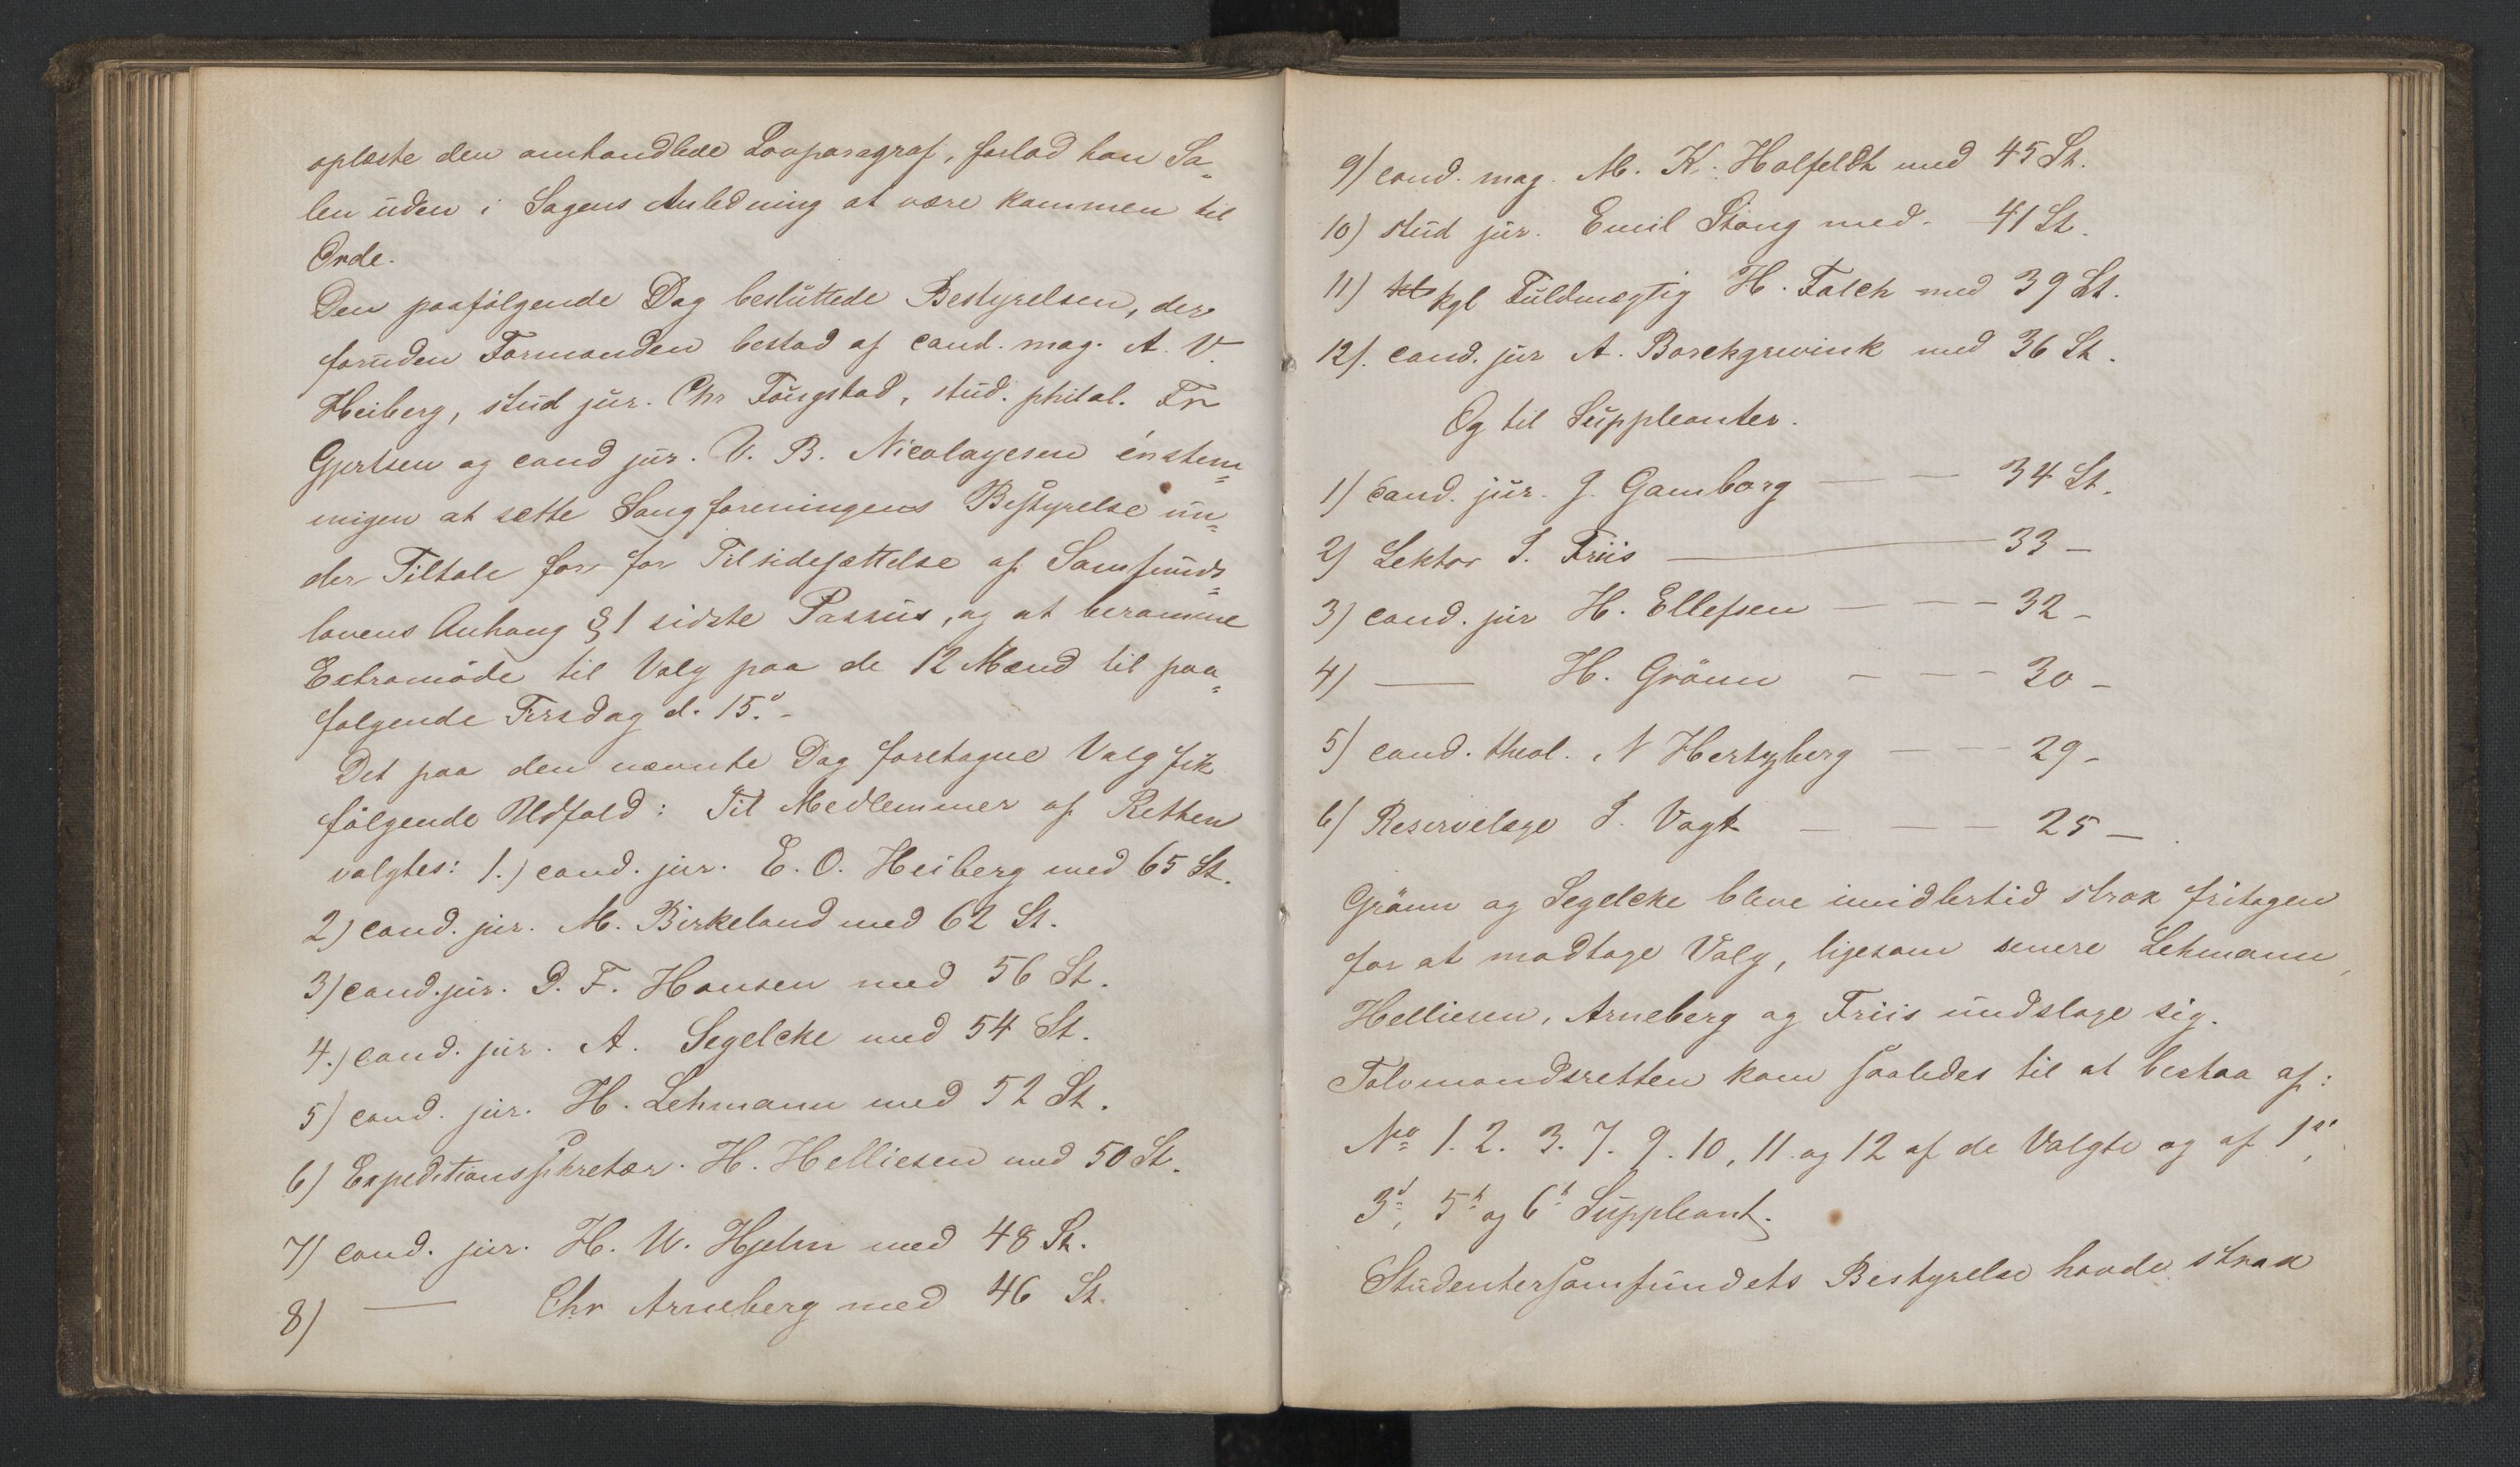 oplæste den omhandlede Lovparagraf, forlod han Sa-
len uden i Sagens Anledning at være kommen til
Orde.
Den paafølgende Dag besluttede Bestyrelsen, der
foruden Formanden bestod af cand. mag. A. V.
Heiberg, stud jur. Chr Fougstad, stud. philol. Fr
Gjertsen og cand jur. V. B. Nicolaysen enstem-
migen at sætte Sangforeningens Bestyrelse un-
der Tiltale for for Tilsidesættelse af Samfunds-
lovens Anhang § 1 sidste Passus, og at beramme
Extramøde til Valg paa de 12 Mænd til paa-
følgende Tirsdag d. 15.d -
Det paa den nævnte Dag foretagne Valg fik
følgende Udfald: Til Medlemmer af Retten
valgtes: 1.) cand. jur. E. O. Heiberg med 65 St.
2) cand. jur. M. Birkeland med 62 St.
3) cand. jur. D. F. Hansen med 56 St.
4.) cand. jur. A. Segelcke med 54 St.
5) cand. jur. H. Lehmann med 52 St.
6) Expeditionssekretær. H. Helliesen med 50 St.
7) cand. jur. H. U. Hjelm med 48 St.
8) — Chr Arneberg med 46 St.
9) cand. mag. M. K. Holfeldt med 45 St.
10) stud jur. Emil Stang med - 41 St.
11) kgl Fuldmægtig H. Falch med 39 St.
12). cand. jur A. Borchgrevink med 36 St.
Og til Suppleanter.
1) cand. jur. J. Gamborg — — 34 St.
2) Lektor J. Friis — 33 —
3) cand. jur H. Ellefsen — — — 32 —
4) — H. Grönn — — — 30 —
5) cand. theol. N Hertzberg — — 29 —
6) Reservelæge J. Vogt — — — 25 —
Grönn og Segelcke bleve imidlertid strax fritagen
for at modtage Valg, ligesom senere Lehmann,
Helliesen, Arneberg og Friis undsloge sig.
Tolvmandsretten kom saaledes til at bestaa af:
No 1. 2. 3. 7. 9. 10, 11. og 12 af de Valgte og af 1st,
3d, 5t og 6t Suppleant.
Studentersamfundets Bestyrelse havde strax